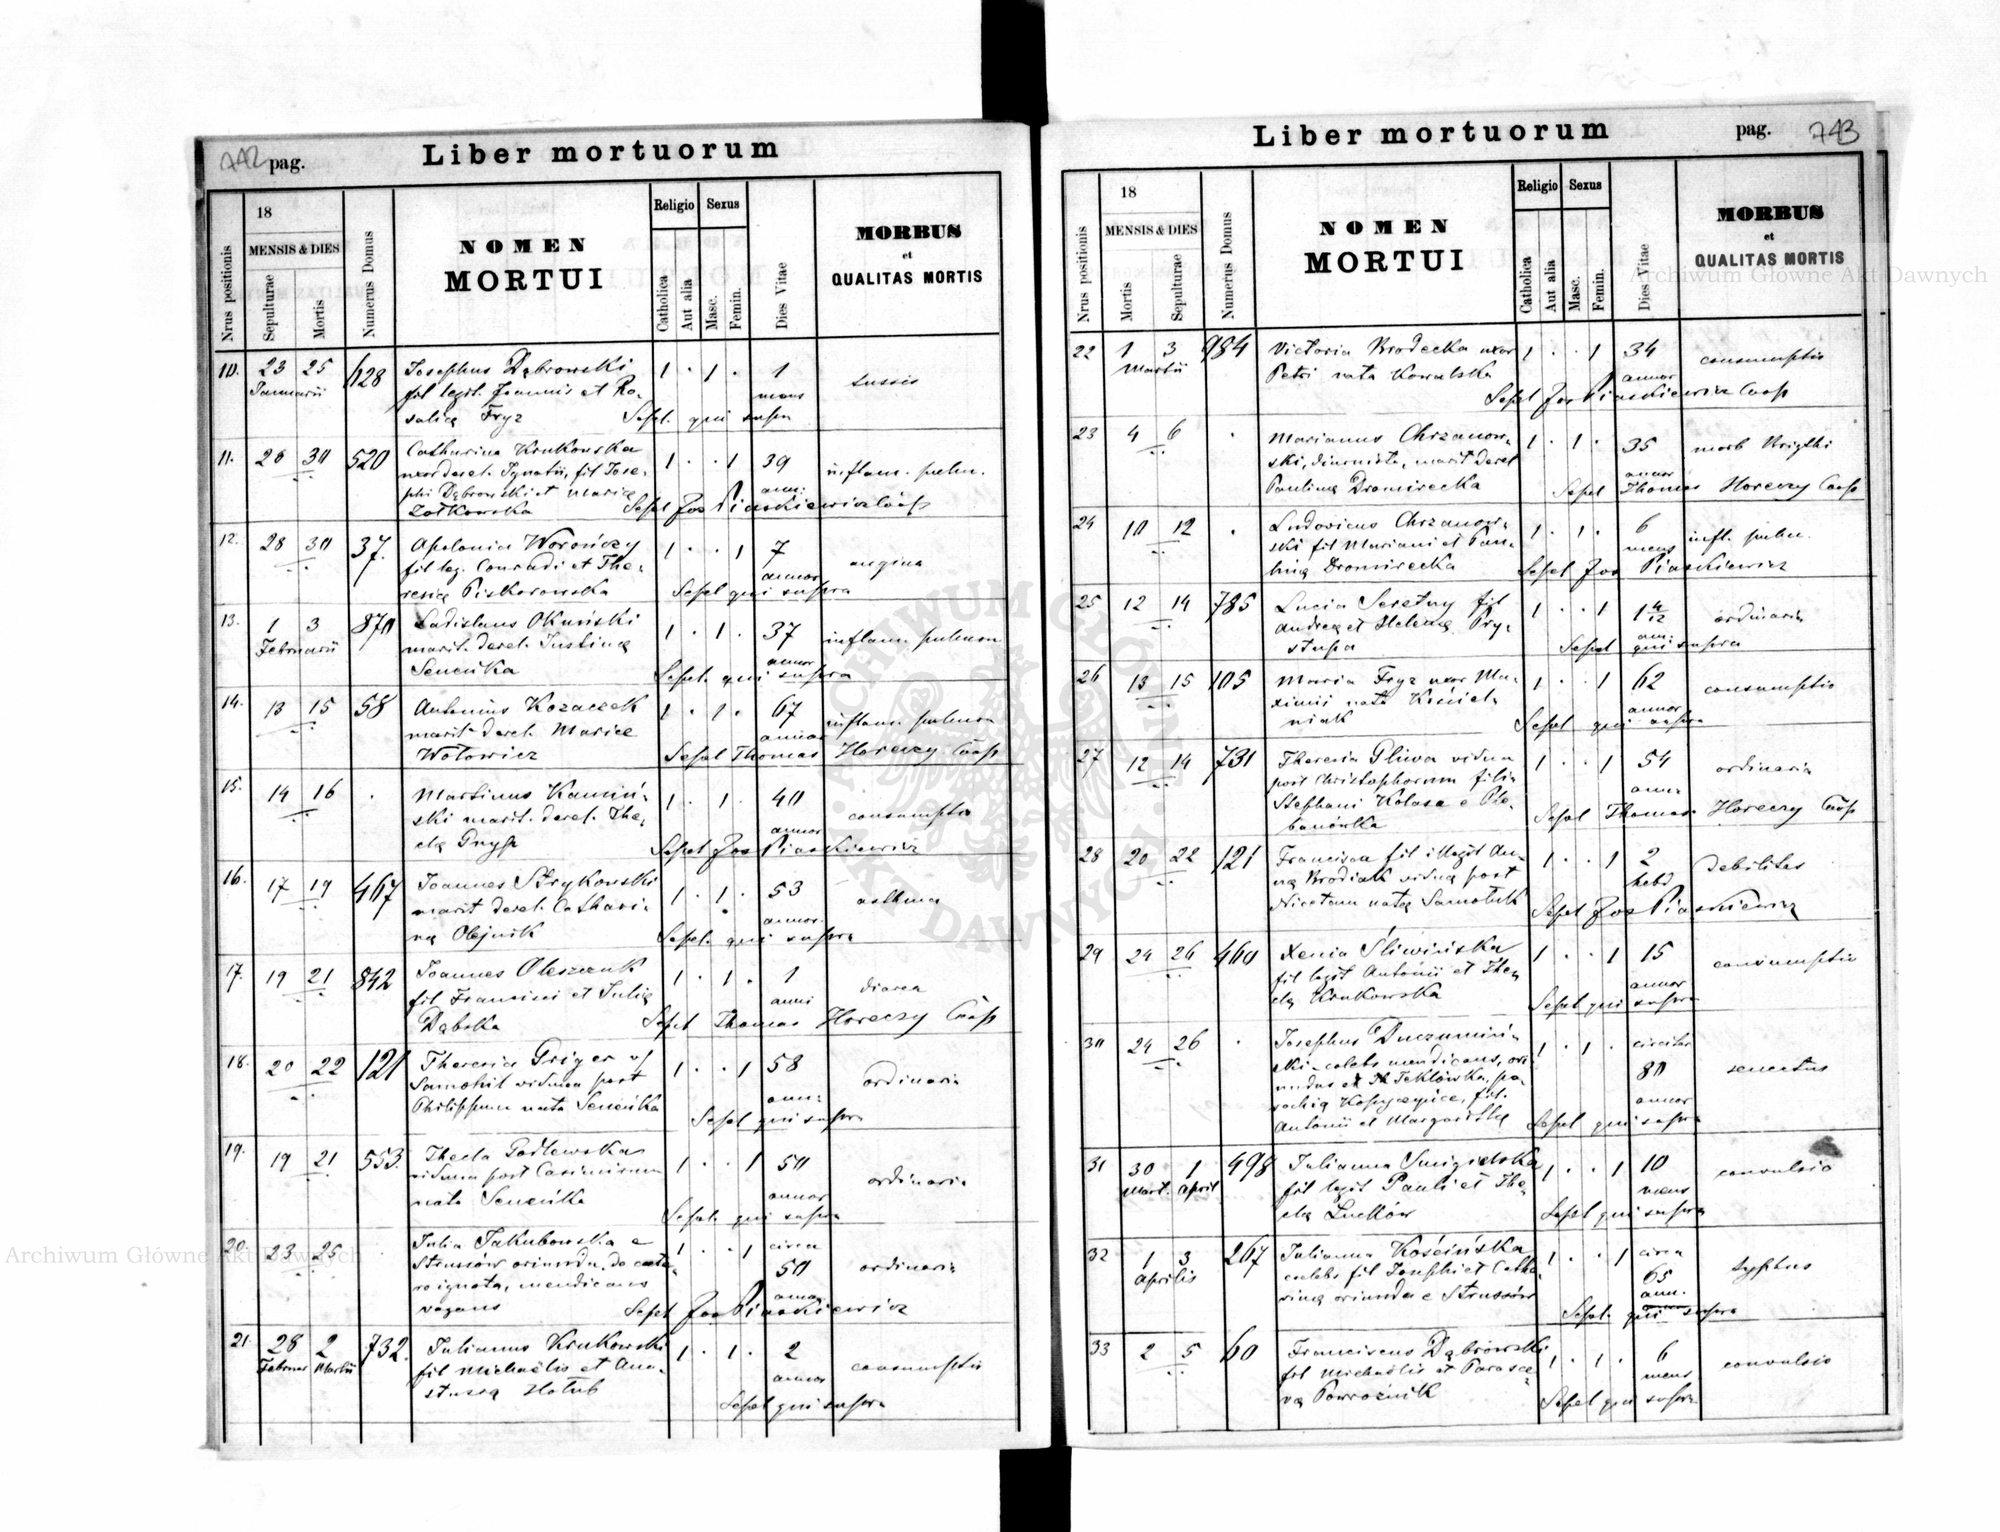 742 pag.
Liber mortuorum
18
MENSIS & DIES
Nrus positionis
Sepulturae
Mortis
Numerus Domus
NOMEN
MORTUI
Religio
Sexus
Catholica
Aut alia
Masc.
Femin.
Dies Vitae
MORBUS
et
QUALITAS MORTIS
10. 23 25 628 Josephus Dąbrowski 1 . 1 . 1 tussis
Januarii fil legit. Joannis et Ro- mens
salię Fryz Sepel. qui supra
11. 28 30 520 Catharina Krukowska 1 . . 1 39 inflam. pulm.
uxor derel. Ignatii, fil Jose-
phi Dąbrowski et Marię ann:
Żołkowska Sepel Jos Piaskiewicz Coop
12. 28 30 37. Apolonia Worończy 1 . . 1 7 angina
fil leg. Conradi et The- annor
resię Piskorowska Sepel qui supra
13. 1 3 870 Ladislaus Okuński 1 . 1 . 37 inflam. pulmon
Februarii marit. derel. Justinę annor
Seneńka Sepel. qui supra
14. 13 15 58 Antonius Kozaczek 1 . 1 . 67 inflam. pulmon
marit. derel. Mariae annor
Wołowicz Sepel Thomas Horeczy Coop
15. 14 16 . Martinus Kamiń- 1 . 1 . 40 consumptio
ski marit. derel. The- annor
clę Gnyp Sepel Jos Piaskiewicz
16. 17 19 467 Joannes Strykowski 1 . 1 . 53 asthma
marit derel. Cathari- annor.
nę Olejnik Sepel. qui supra
17. 19 21 842 Joannes Oleszczuk 1 . 1 . 1 diarea
fil Francisci et Julię anni
Dąbska Sepel Thomas Horeczy Coop
18. 20 22 121 Theresia Griger v/ 1 . . 1 58 ordinaria
Samohil vidua post ann:
Philippum nata Seneńka Sepel qui supra
19. 19 21 553. Thecla Podlewska 1 . . 1 50 ordinaria
vidua post Casimirum annor
nata Seneńka Sepel. qui supra
20. 23 25 . Julia Jakubowska e 1 . . 1 circa
Strussów oriunda, de cete- 50 ordinaria
ro ignota, mendicans annor
vagans Sepel Jos Piaskiewicz
21. 28 2 732. Julianus Krukowski 1 . 1 . 2 consumptio
Februar Martii fil Michaëlis et Ana- annor
stasię Hołub Sepel qui supra
Liber mortuorum
pag. 743
18
MENSIS & DIES
Nrus positionis
Mortis
Sepulturae
Numerus Domus
NOMEN
MORTUI
Religio
Sexus
Catholica
Aut alia
Masc.
Femin.
Dies Vitae
MORBUS
et
QUALITAS MORTIS
22 1 3 984 Victoria Brodecka uxor 1 . . 1 34 consumptio
Martii Petri nata Kowalska annor
Sepel Jos Piaskiewicz Coop
23 4 6 . Marianus Chrzanow- 1 . 1 . 35 morb Brigthi
ski, diurnista, marit derel annor
Paulinę Dromirecka Sepel Thomas Horeczy Coop
24 10 12 . Ludovicus Chrzanow- 1 . 1 . 6 infl. pulm.
ski fil Mariani et Pau- mens
linę Dromirecka Sepel Jos Piaskiewicz
25 12 14 785 Lucia Seretny fil 1 . . 1 1 4/12 ordinaria
Andreę et Helenę Pry- ann:
stupa Sepel qui supra
26 13 15 105 Maria Fryz uxor Ma- 1 . . 1 62 consumptio
ximii nata Kisiel- annor
niak Sepel qui supra
27 12 14 731 Theresia Gliwa vidua 1 . . 1 54 ordinaria
post Christophorum filia ann:
Stephani Kolasa e Ple-
banówka Sepel Thomas Horeczy Coop
28 20 22 121 Francisca fil illegit An- 1 . . 1 2 debilitas
nę Brodiak vidua post hebd
Nicetam natę Samoluk Sepel Jos Piaskiewicz
29 24 26 460 Xenia Śliwińska 1 . . 1 15 consumptio
fil legit Antonii et The- annor
clę Krukowska Sepel qui supra
30 24 26 . Josephus Duczumiń- 1 . 1 . circiter
ski caelebs mendicans, ori- 80 senectus
undus Teklówka, pa- annor
rochię Kopyczyńce, fil.
Antonii et Margarithę Sepel qui supra
31 30 1 498 Julianna Smigielska 1 . . 1 10 convulsio
Mart. April fil legit Pauli et The- mens
clę Lucków Sepel qui supra
32 1 3 267 Julianna Kościńska 1 . . 1 circa
Aprilis caelebs fil Josephi et Catha- 65 typhus
rinę oriunda e Strussów ann.
Sepel. qui supra
33 2 5 60 Franciscus Dąbrowski 1 . 1 . 6 convulsio
fil Michaëlis et Parasce- mens
vę Powroźnik Sepel qui supra
Archiwum Główne Akt Dawnych
Archiwum Główne Akt Dawnych
ARCHIWUM GŁÓWNE AKT DAWNYCH